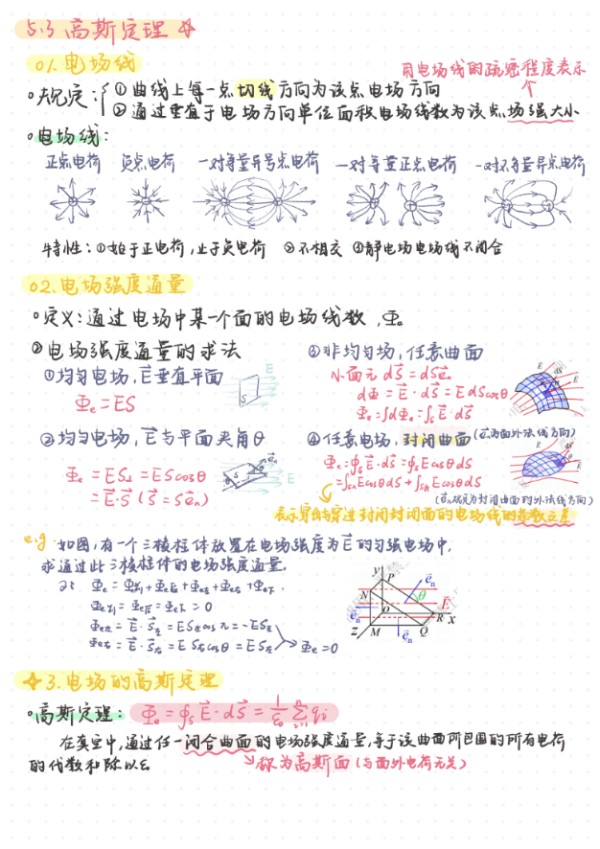 5.3 高斯定理 ☆
01. 电场线
用电场线的疏密程度表示
规定: ① 曲线上每一点切线方向为该点电场方向
② 通过垂直于电场方向单位面积电场线数为该点场强大小
电场线:
正点电荷 负点电荷 一对等量异号点电荷 一对等量正点电荷 一对不等量异点电荷
特性: ①始于正电荷,止于负电荷 ②不相交 ③静电场电场线不闭合
02. 电场强度通量
定义: 通过电场中某一个面的电场线数,Φe
②电场强度通量的求法
①均匀电场, E⃗垂直平面
Φe = ES
②均匀电场, E⃗与平面夹角θ
Φe = ES⊥ = EScosθ
= E⃗·S⃗ (S⃗ = Se⃗n)
③非均匀场, 任意曲面
小面元 dS⃗ = dSe⃗n
dΦ = E⃗·dS⃗ = EdScosθ
Φe = ∫dΦe = ∫s E⃗·dS⃗
④任意电场, 封闭曲面 (e⃗n为面外法线方向)
Φe = ∮s E⃗·dS⃗ = ∮s EcosθdS
(e⃗n规定为封闭曲面的外法线方向)
e.g 如图,有一个三棱柱体放置在电场强度为E⃗的匀强电场中,
求通过此三棱柱体的电场强度通量。
Φe左 = E⃗·S⃗左 = ES左cosπ = -ES左
Φe右 = E⃗·S⃗右 = ES右cosθ = ES左
Φe = 0
y P N e⃗n θ E⃗ O R x e⃗n z M Q e⃗n
3. 电场的高斯定理
高斯定理: Φe = ∮s E⃗·dS⃗ = 1/ε₀ Σqi
在真空中,通过任一闭合曲面的电场强度通量,等于该曲面所包围的所有电荷
的代数和除以ε
称为高斯面 (与面外电荷无关)